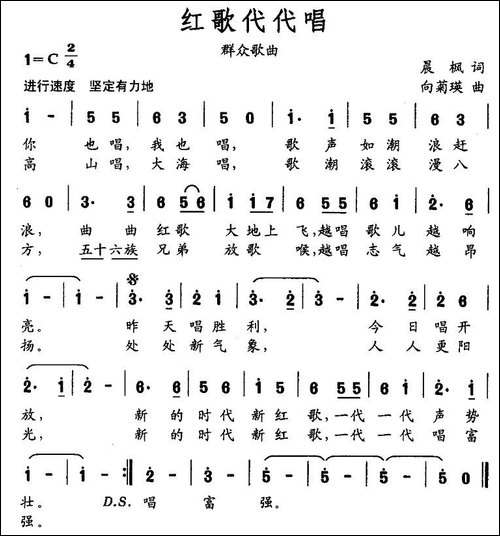 红歌代代唱
群众歌曲
1=C 2/4
进行速度 坚定有力地
晨枫 词
向菊瑛 曲
i - | 5 5 | 6 3 | 5 0 | i· i | 5 5 | 6 3 |
你 也唱，我也 唱， 歌 声如潮 浪赶
高 山唱，大海 唱， 歌 潮滚滚 漫八
6 0 | 3· 3 | 6 56 | i i7 | 6 55 | 6 i | 2· 6 |
浪， 曲 曲红歌 大地上 飞，越唱 歌儿 越 响
方， 五十六族 兄弟 放歌 喉，越唱 志气 越 昂
i - | i - | 3· 3 | 2 i | 3· 2 | 3 - | 2· 2 | 2 6 |
亮。 昨 天唱胜利， 今 日唱开
扬。 处 处新气象， 人 人更阳
2· i | 2 - | 6· 6 | 5 6 | i 2 | 3 i | 6 55 | 6 i | 2 6 |
放， 新 的时代新红歌，一代一代声势
光， 新 的时代新红歌，一代一代唱富
i - | i - :‖ 2 - | 3 - | 5 - | 5 - | 5 0 ‖
壮。 D.S. 唱 富 强。
强。